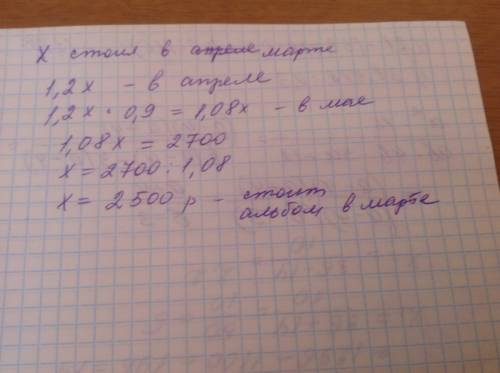 x стоил в апреле марте
1,2x – в апреле
1,2x · 0,9 = 1,08x – в мае
1,08x = 2700
x = 2700 : 1,08
x = 2500 р – стоит
альбом в марте